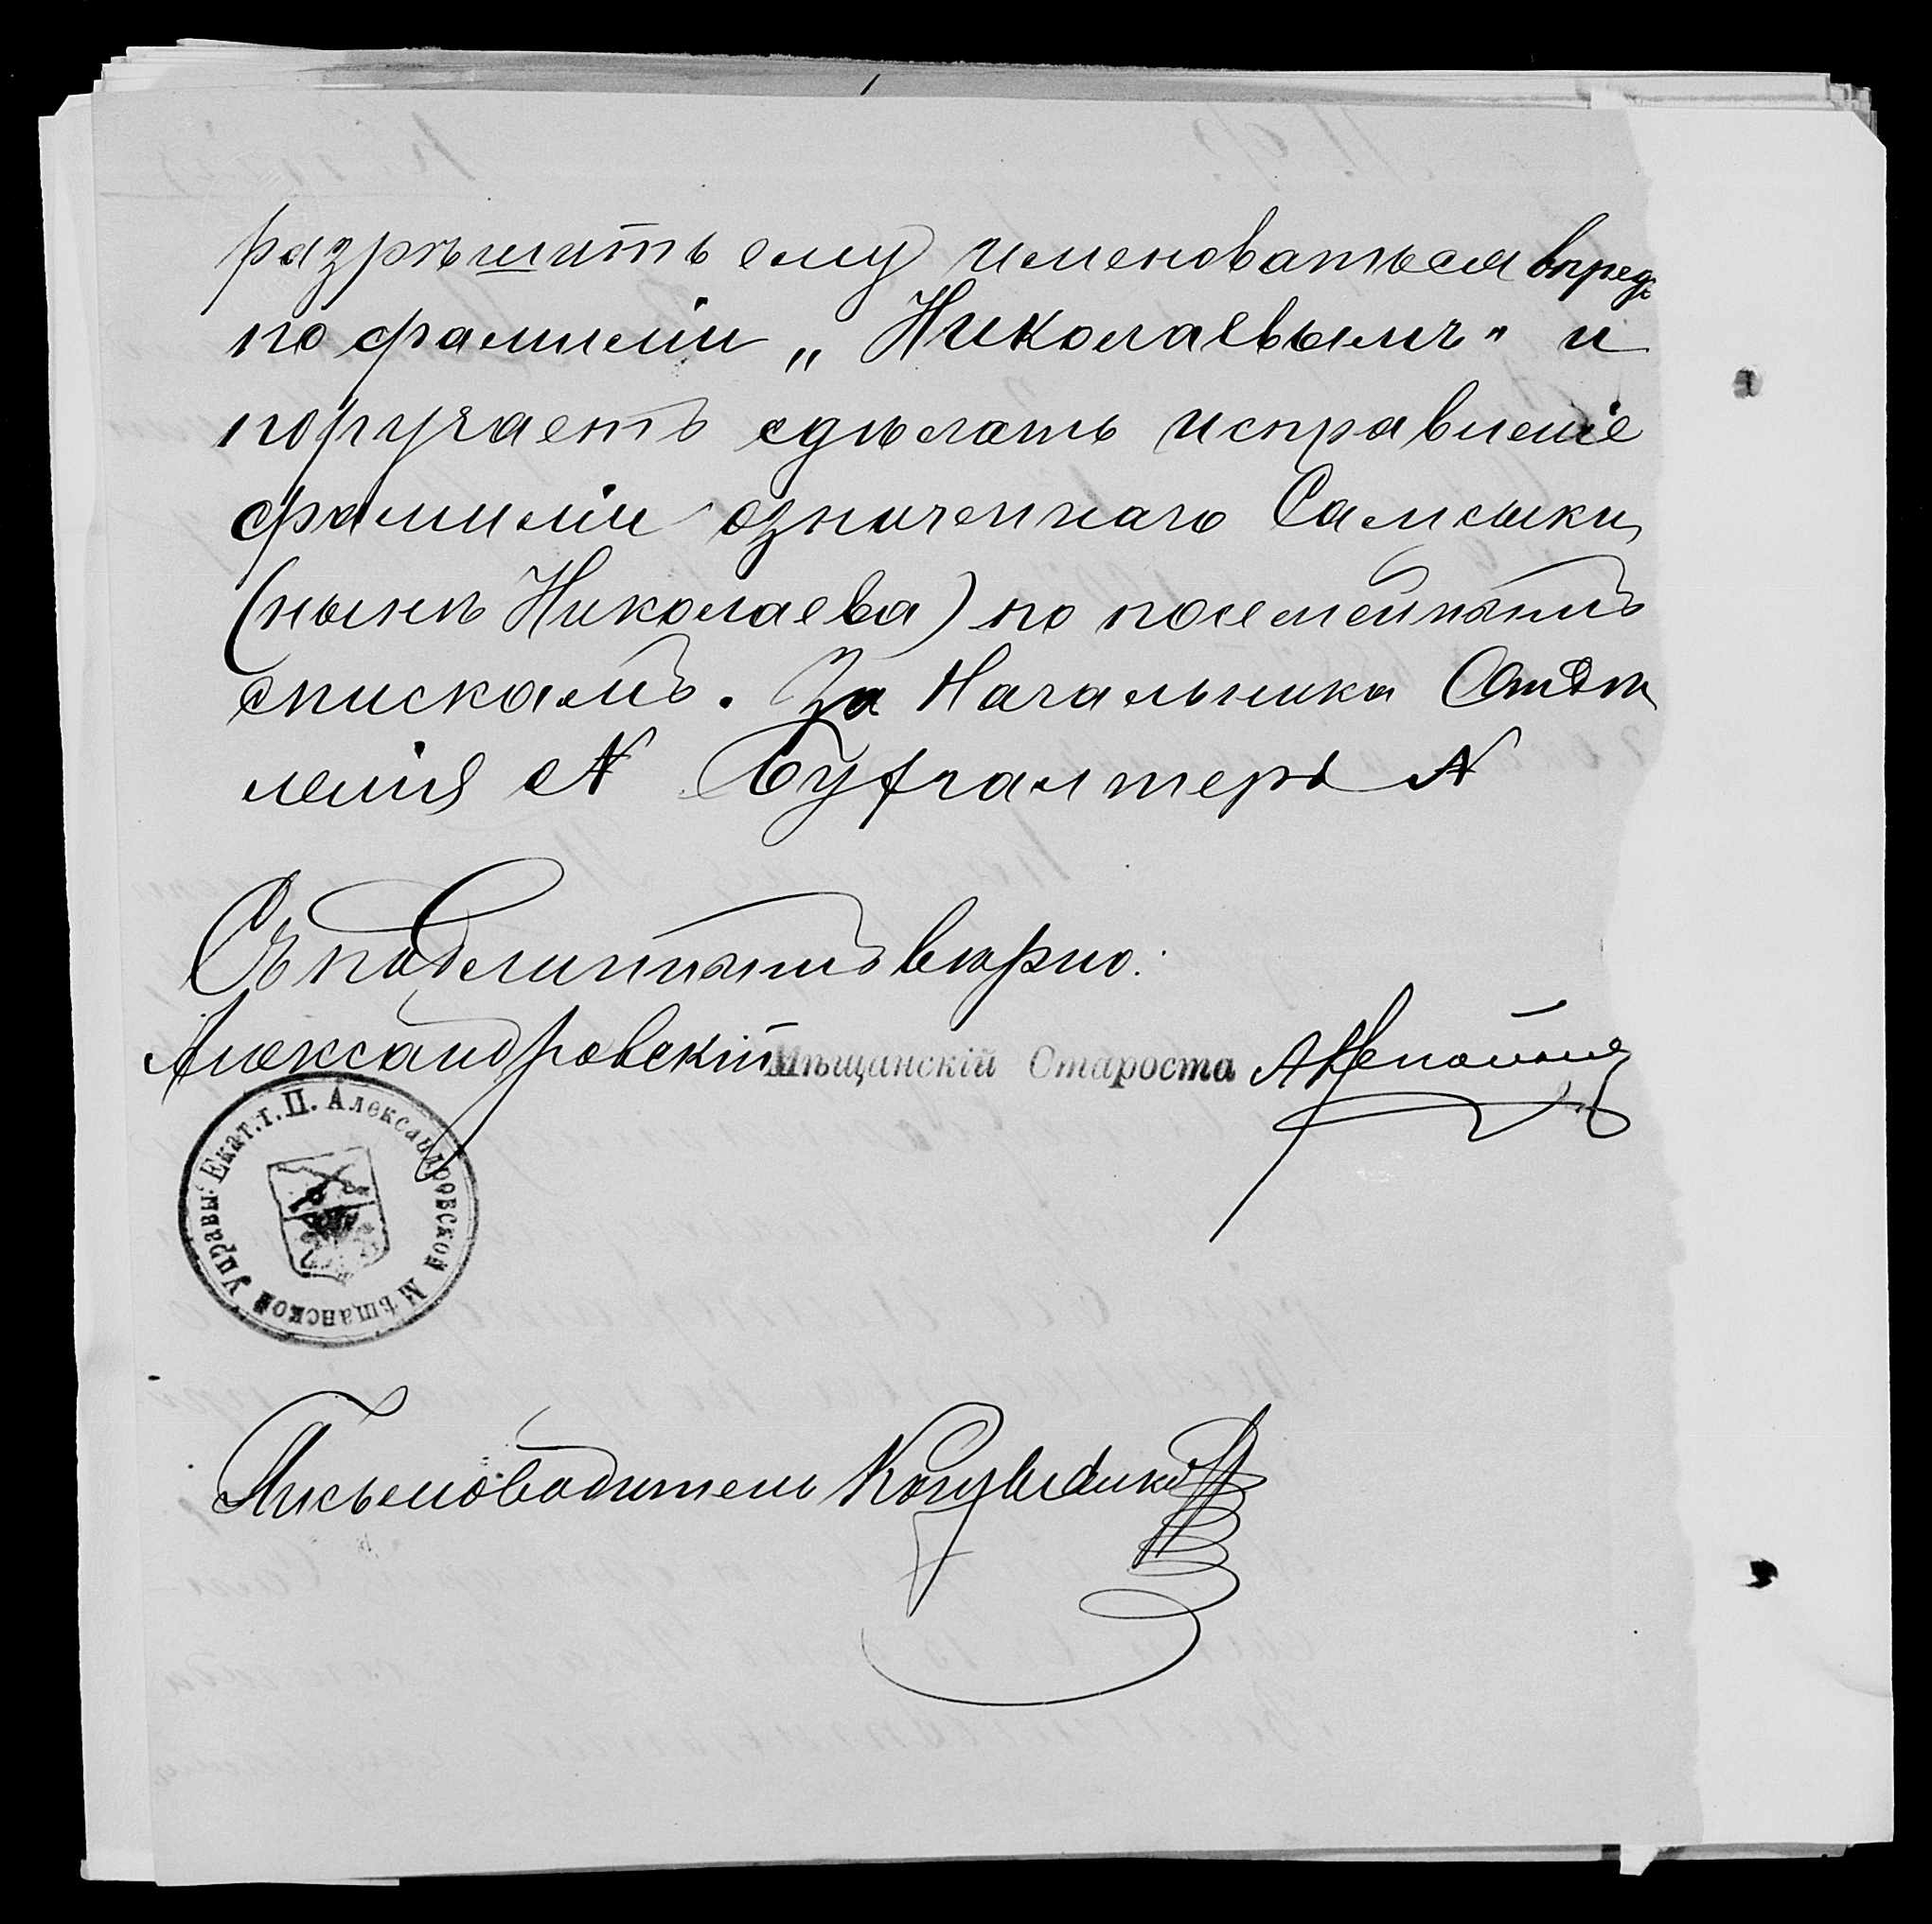 разрѣшить ему именоваться впредь
по фамиліи „Николаевымъ" и
поручаетъ сдѣлать исправленіе
фамиліи означеннаго Самсыки
(нынѣ Николаева) по посемейнымъ
спискамъ. За Начальника Отдѣ
ленія N Бухгалтеръ N
Съ подлиннымъ вѣрно:
Александровскій Мѣщанскій Староста
Екат. г. П. Александровской Мѣщанской Управы
Письмоводитель